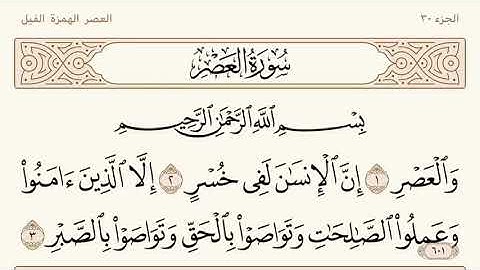 الجزء ٣٠
العصر الهمزة الفيل
سُورَةُ العَصْرِ
بِسْمِ ٱللَّهِ ٱلرَّحْمَٰنِ ٱلرَّحِيمِ
وَٱلْعَصْرِ ١ إِنَّ ٱلْإِنسَٰنَ لَفِى خُسْرٍ ٢ إِلَّا ٱلَّذِينَ ءَامَنُوا۟
وَعَمِلُوا۟ ٱلصَّٰلِحَٰتِ وَتَوَاصَوْا۟ بِٱلْحَقِّ وَتَوَاصَوْا۟ بِٱلصَّبْرِ ٣
٦٠١